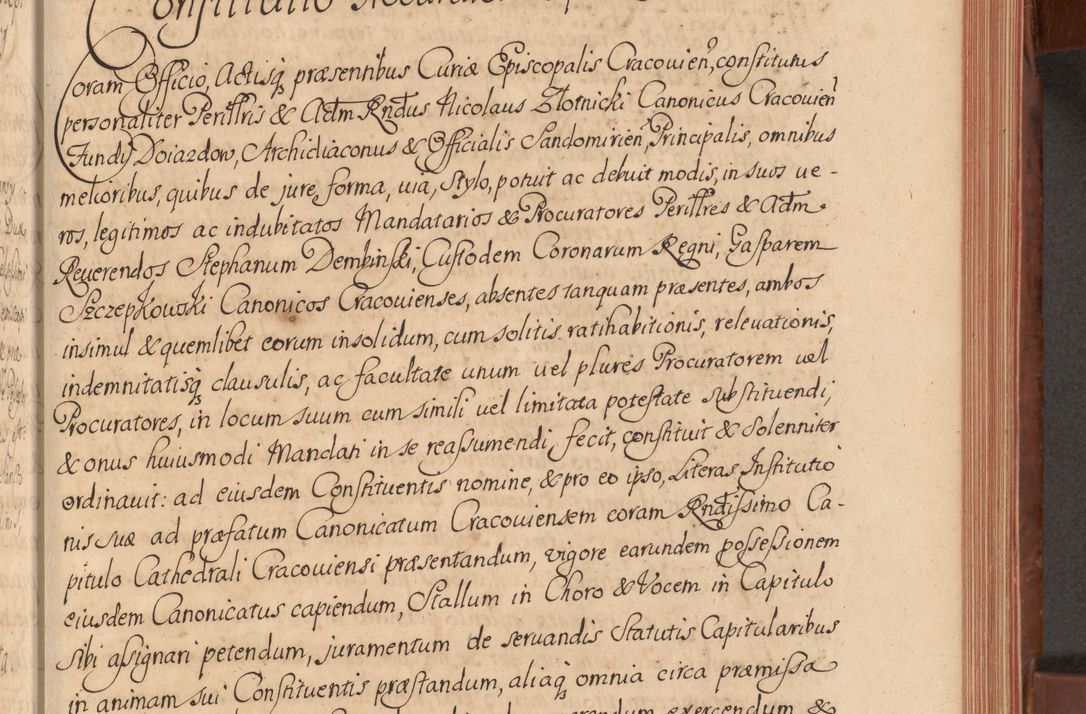 Constitutio
Coram Officio, Actisq̃ præsentibus Curiæ Episcopalis Cracouien̄, constitutus
personaliter Perillris & Adm Rndus Nicolaus Złotnicki Canonicus Cracouien̄
Fundi Doiazdow, Archidiaconus & Officialis Sandomirien̄ Principalis, omnibus
melioribus, quibus de jure, forma, uia, Stylo, potuit ac debuit modis, in suos ue-
ros, legitimos ac indubitatos Mandatarios & Procuratores Perillres & Adm.
Reuerendos Stephanum Dembinski, Custodem Coronarum Regni, Gasparem
Szczepkowski Canonicos Cracouienses, absentes tanquam præsentes, ambos
insimul & quemlibet eorum insolidum, cum solitis ratihabitionis, releuationis,
indemnitatisq̃ clausulis, ac facultate unum uel plures Procuratorem uel
Procuratores, in locum suum cum simili uel limitata potestate substituendi,
& onus huiusmodi Mandati in se reassumendi, fecit, constituit & Solenniter
ordinauit: ad eiusdem Constituentis nomine, & pro eo ipso, Literas Institutio
nis suæ ad præfatum Canonicatum Cracouiensem coram Rndissimo Ca-
pitulo Cathedrali Cracouiensi præsentandum, vigore earundem possessionem
eiusdem Canonicatus capiendum, Stallum in Choro & Vocem in Capitulo
sibi assignari petendum, juramentum de seruandis Statutis Capitularibus
in animam sui Constituentis præstandum, aliaq̃ omnia circa præmissa
exercendum &